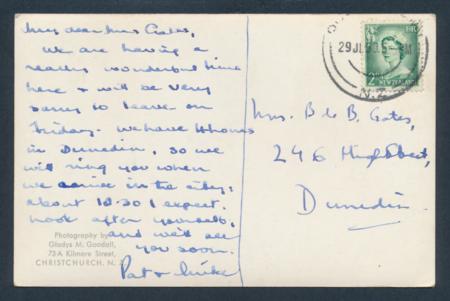 My dear Mrs Gates,
We are having a
really wonderful time
here & will be very
sorry to leave on
Friday. We have 4 hours
in Dunedin, so we
will ring you when
we arrive in the city;
about 10.30 I expect.
Look after yourselves,
and we'll see
you soon.
Pat & Mike
Photography by
Gladys M. Goodall,
73-A Kilmore Street,
CHRISTCHURCH, N. Z.
29 JL
N.Z.
NEW ZEALAND
Mrs. B & B. Gates,
246 High Street,
Dunedin.